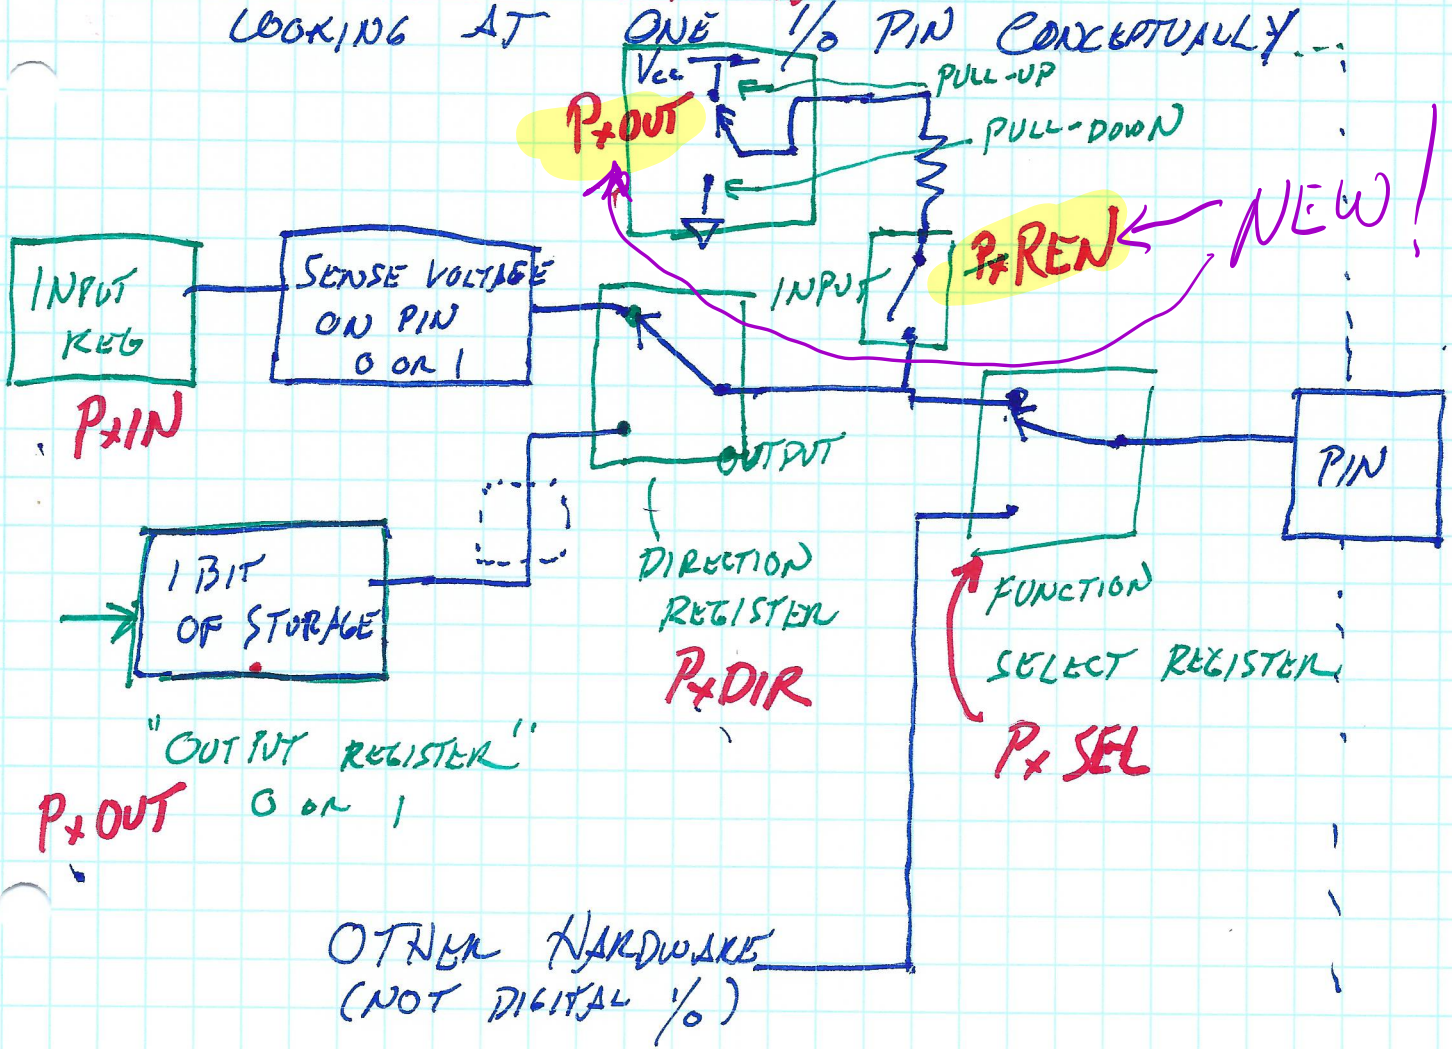 LOOKING AT ONE I/O PIN CONCEPTUALLY...
Vcc
PULL-UP
PxOUT
PULL-DOWN
NEW!
PxREN
INPUT
REG
SENSE VOLTAGE
ON PIN
0 OR 1
INPUT
PxIN
OUTPUT
PIN
1 BIT
OF STORAGE
DIRECTION
REGISTER
PxDIR
FUNCTION
SELECT REGISTER
PxSEL
"OUTPUT REGISTER"
0 OR 1
PxOUT
OTHER HARDWARE
(NOT DIGITAL I/O)